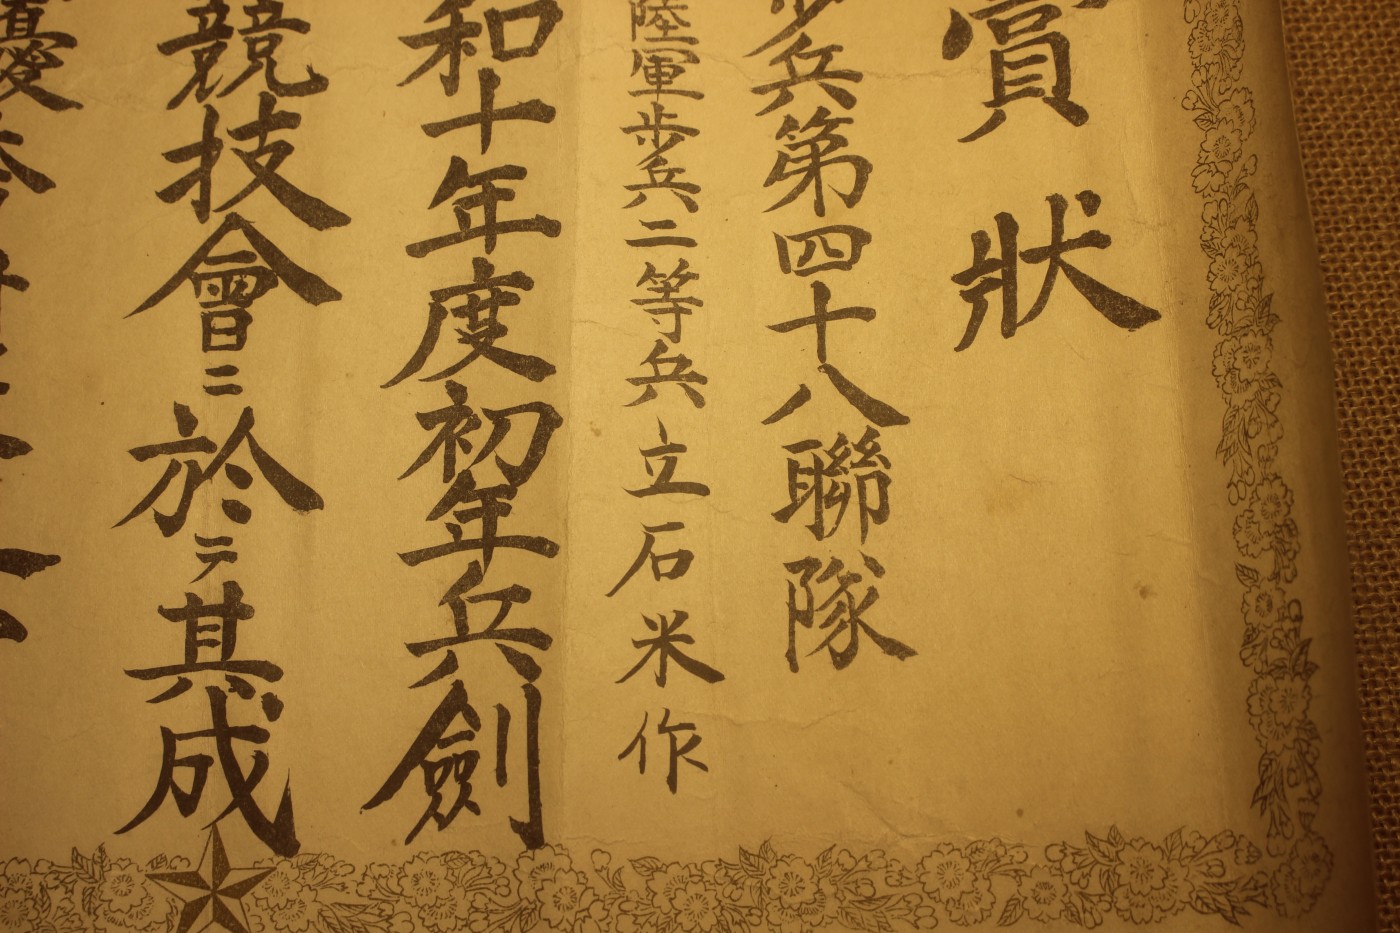 賞狀
步兵第四十八聯隊
陸軍步兵二等兵立石米作
和十年度初年兵劍
競技會ニ於テ其成